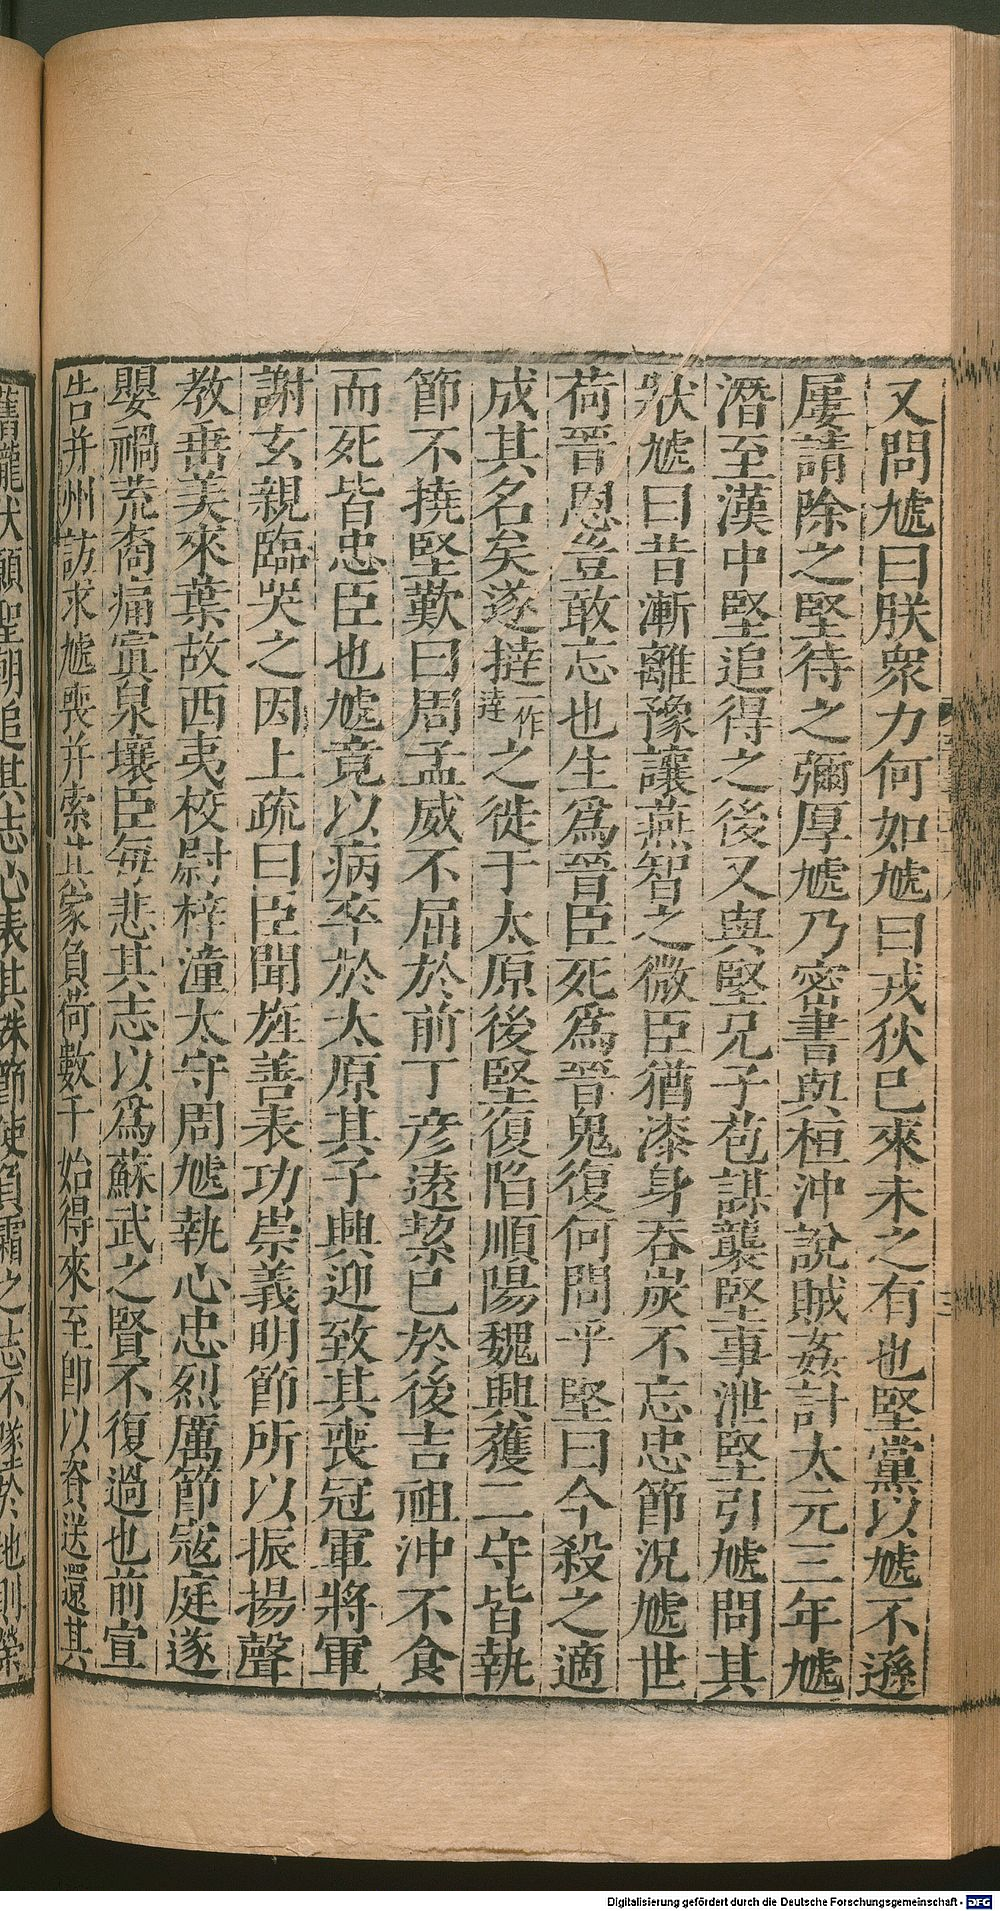 又問虓曰朕衆力何如虓曰戎狄已來未之有也堅黨以虓不遜
屢請除之堅待之彌厚虓乃密書與桓沖說賊姦計太元三年虓
潛至漢中堅追得之後又與堅兄子苞謀襲堅事泄堅引虓問其
狀虓曰昔漸離豫讓燕智之微臣猶漆身吞炭不忘忠節況虓世
荷晉恩豈敢忘也生爲晉臣死爲晉鬼復何問乎堅曰今殺之適
成其名矣遂撻一作達之徙于太原後堅復陷順陽魏興獲二守皆執
節不撓堅歎曰周孟威不屈於前丁彥遠潔已於後吉祖沖不食
而死皆忠臣也虓竟以病卒於太原其子興迎致其喪冠軍將軍
謝玄親臨哭之因上疏曰臣聞旌善表功崇義明節所以振揚聲
教垂美來葉故西夷校尉梓潼太守周虓執心忠烈厲節寇庭遂
嬰禍荒裔痛寘泉壤臣每悲其志以爲蘇武之賢不復過也前宣
告并州訪求虓喪并索其家負荷數千始得來至即以資送還其
舊隴伏願聖朝追其志心表其殊節使負霜之志不墜於地則榮
Digitalisierung gefördert durch die Deutsche Forschungsgemeinschaft - DFG